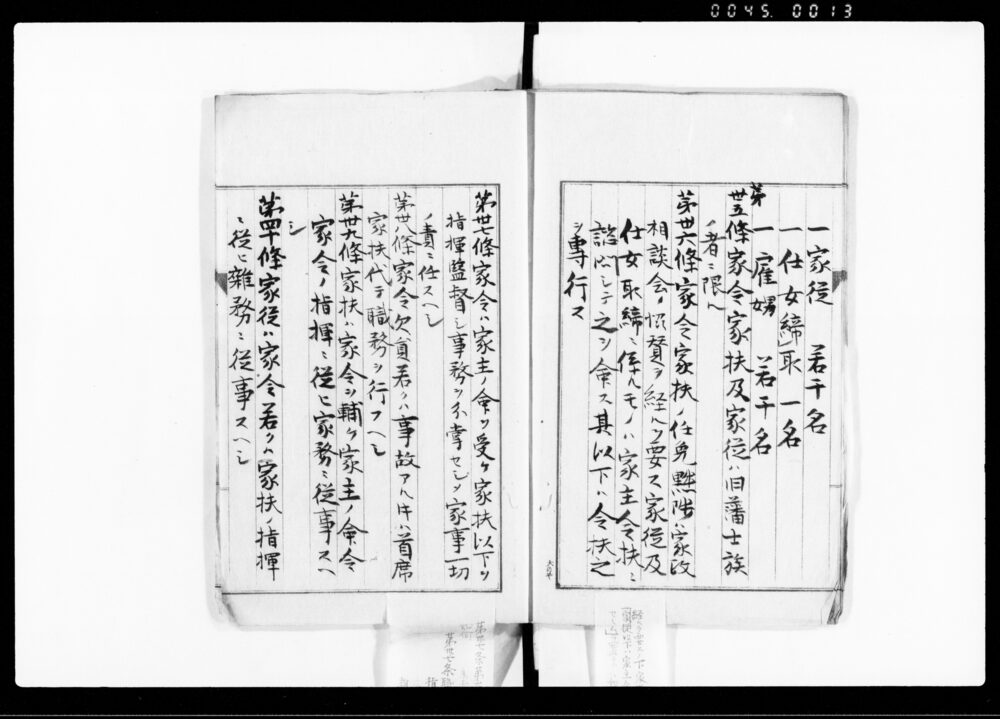 0045. 0013
一家従 若干名
一仕女締取 一名
一雇婢 若干名
第卅五條家令家扶及家従ハ旧藩士族
ノ者ニ限ヘ
第卅六條家令家扶ノ任免黜陟ハ家政
相談会ノ協賛ヲ経ルヲ要ス家従及
仕女取締ニ係ルモノハ家主令扶ニ
諮問シテ之ヲ命ス其以下ハ令扶之
ヲ専行ス
第卅七條家令ハ家主ノ命ヲ受ケ家扶以下ヲ
指揮監督シ事務ヲ分掌セシメ家事一切
ノ責ニ任スヘシ
第卅八條家令欠員若クハ事故アル片ハ首席
家扶代テ職務ヲ行フヘシ
第卅九條家扶ハ家令ヲ輔ケ家主ノ命令
家令ノ指揮ニ従ヒ家務ニ従事スヘ
シ
第四十條家従ハ家令若クハ家扶ノ指揮
ニ従ヒ雑務ニ従事スヘシ